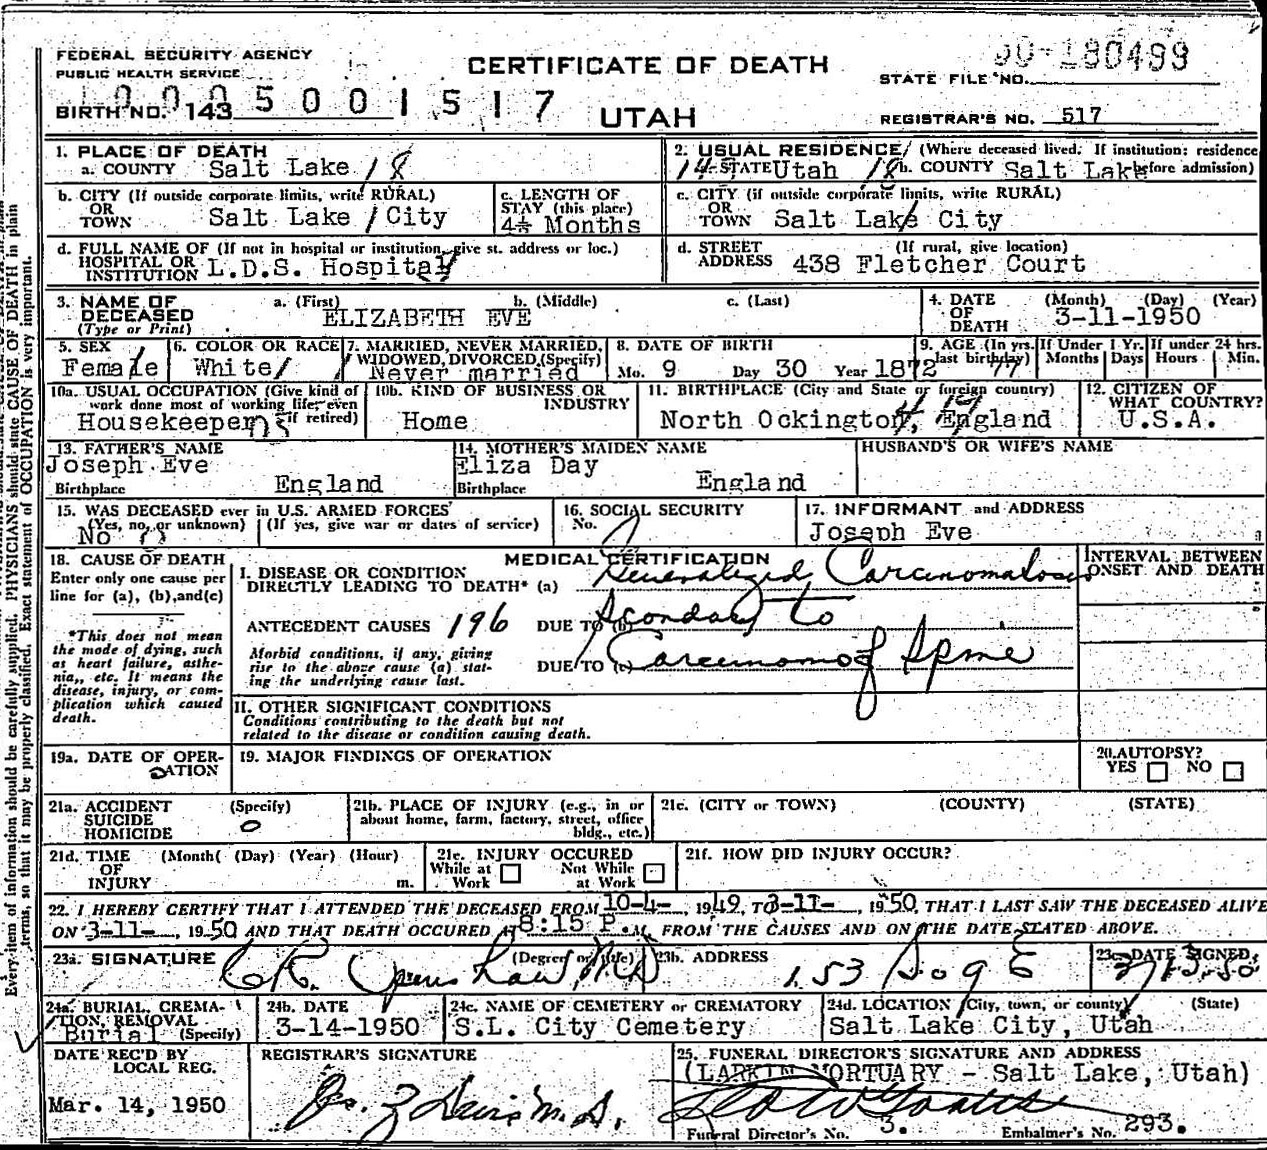 FEDERAL SECURITY AGENCY
PUBLIC HEALTH SERVICE
CERTIFICATE OF DEATH
UTAH
STATE FILE NO. 180499
BIRTH NO. 143 5001517
REGISTRAR'S NO. 517
1. PLACE OF DEATH
a. COUNTY Salt Lake 18
2. USUAL RESIDENCE (Where deceased lived. If institution: residence before admission)
14 a. STATE Utah 18 b. COUNTY Salt Lake
b. CITY (If outside corporate limits, write RURAL)
OR
TOWN Salt Lake City
c. LENGTH OF
STAY (this place)
4½ Months
c. CITY (if outside corporate limits, write RURAL)
OR
TOWN Salt Lake City
d. FULL NAME OF (If not in hospital or institution, give st. address or loc.)
HOSPITAL OR
INSTITUTION L.D.S. Hospital
d. STREET (If rural, give location)
ADDRESS 438 Fletcher Court
3. NAME OF a. (First) b. (Middle) c. (Last)
DECEASED
(Type or Print) ELIZABETH EVE
4. DATE (Month) (Day) (Year)
OF
DEATH 3-11-1950
5. SEX
Female
6. COLOR OR RACE
White
7. MARRIED, NEVER MARRIED,
WIDOWED, DIVORCED (Specify)
Never married
8. DATE OF BIRTH
Mo. 9 Day 30 Year 1872
9. AGE (In yrs. last birthday) 77
If Under 1 Yr. Months Days
If under 24 hrs. Hours Min.
10a. USUAL OCCUPATION (Give kind of
work done most of working life, even
if retired)
Housekeeper
10b. KIND OF BUSINESS OR
INDUSTRY
Home
11. BIRTHPLACE (City and State or foreign country)
North Ockington, England
12. CITIZEN OF
WHAT COUNTRY?
U.S.A.
13. FATHER'S NAME
Joseph Eve
Birthplace England
14. MOTHER'S MAIDEN NAME
Eliza Day
Birthplace England
HUSBAND'S OR WIFE'S NAME
15. WAS DECEASED ever in U.S. ARMED FORCES
(Yes, no, or unknown) (If yes, give war or dates of service)
No
16. SOCIAL SECURITY
No.
17. INFORMANT and ADDRESS
Joseph Eve
18. CAUSE OF DEATH
Enter only one cause per
line for (a), (b), and (c)
*This does not mean
the mode of dying, such
as heart failure, asthe-
nia, etc. It means the
disease, injury, or com-
plication which caused
death.
MEDICAL CERTIFICATION
INTERVAL BETWEEN
ONSET AND DEATH
I. DISEASE OR CONDITION
DIRECTLY LEADING TO DEATH* (a) Generalized Carcinomatosis
ANTECEDENT CAUSES 196 DUE TO (b) Secondary to
Morbid conditions, if any, giving
rise to the above cause (a) stat-
ing the underlying cause last.
DUE TO (c) Carcinoma of Spine
II. OTHER SIGNIFICANT CONDITIONS
Conditions contributing to the death but not
related to the disease or condition causing death.
19a. DATE OF OPER-
ATION
19. MAJOR FINDINGS OF OPERATION
20. AUTOPSY?
YES NO
21a. ACCIDENT (Specify)
SUICIDE
HOMICIDE
21b. PLACE OF INJURY (e.g., in or
about home, farm, factory, street, office
bldg., etc.)
21c. (CITY or TOWN) (COUNTY) (STATE)
21d. TIME (Month( (Day) (Year) (Hour)
OF
INJURY m.
21e. INJURY OCCURED
While at Work Not While at Work
21f. HOW DID INJURY OCCUR?
22. I HEREBY CERTIFY THAT I ATTENDED THE DECEASED FROM 10-4-, 1949, TO 3-11-, 1950, THAT I LAST SAW THE DECEASED ALIVE
ON 3-11-, 1950 AND THAT DEATH OCCURED AT 8:15 P.M. FROM THE CAUSES AND ON THE DATE STATED ABOVE.
23a. SIGNATURE (Degree or title)
23b. ADDRESS
153 So 9 E
23c. DATE SIGNED
24a. BURIAL, CREMA-
TION, REMOVAL
(Specify)
Burial
24b. DATE
3-14-1950
24c. NAME OF CEMETERY or CREMATORY
S.L. City Cemetery
24d. LOCATION (City, town, or county) (State)
Salt Lake City, Utah
DATE REC'D BY
LOCAL REG.
Mar. 14, 1950
REGISTRAR'S SIGNATURE
25. FUNERAL DIRECTOR'S SIGNATURE AND ADDRESS
(LARKIN MORTUARY - Salt Lake, Utah)
Funeral Director's No. 3. Embalmer's No. 293.
Every item of information should be carefully supplied. PHYSICIANS should state CAUSE OF DEATH in plain
terms, so that it may be properly classified. Exact statement of OCCUPATION is very important.